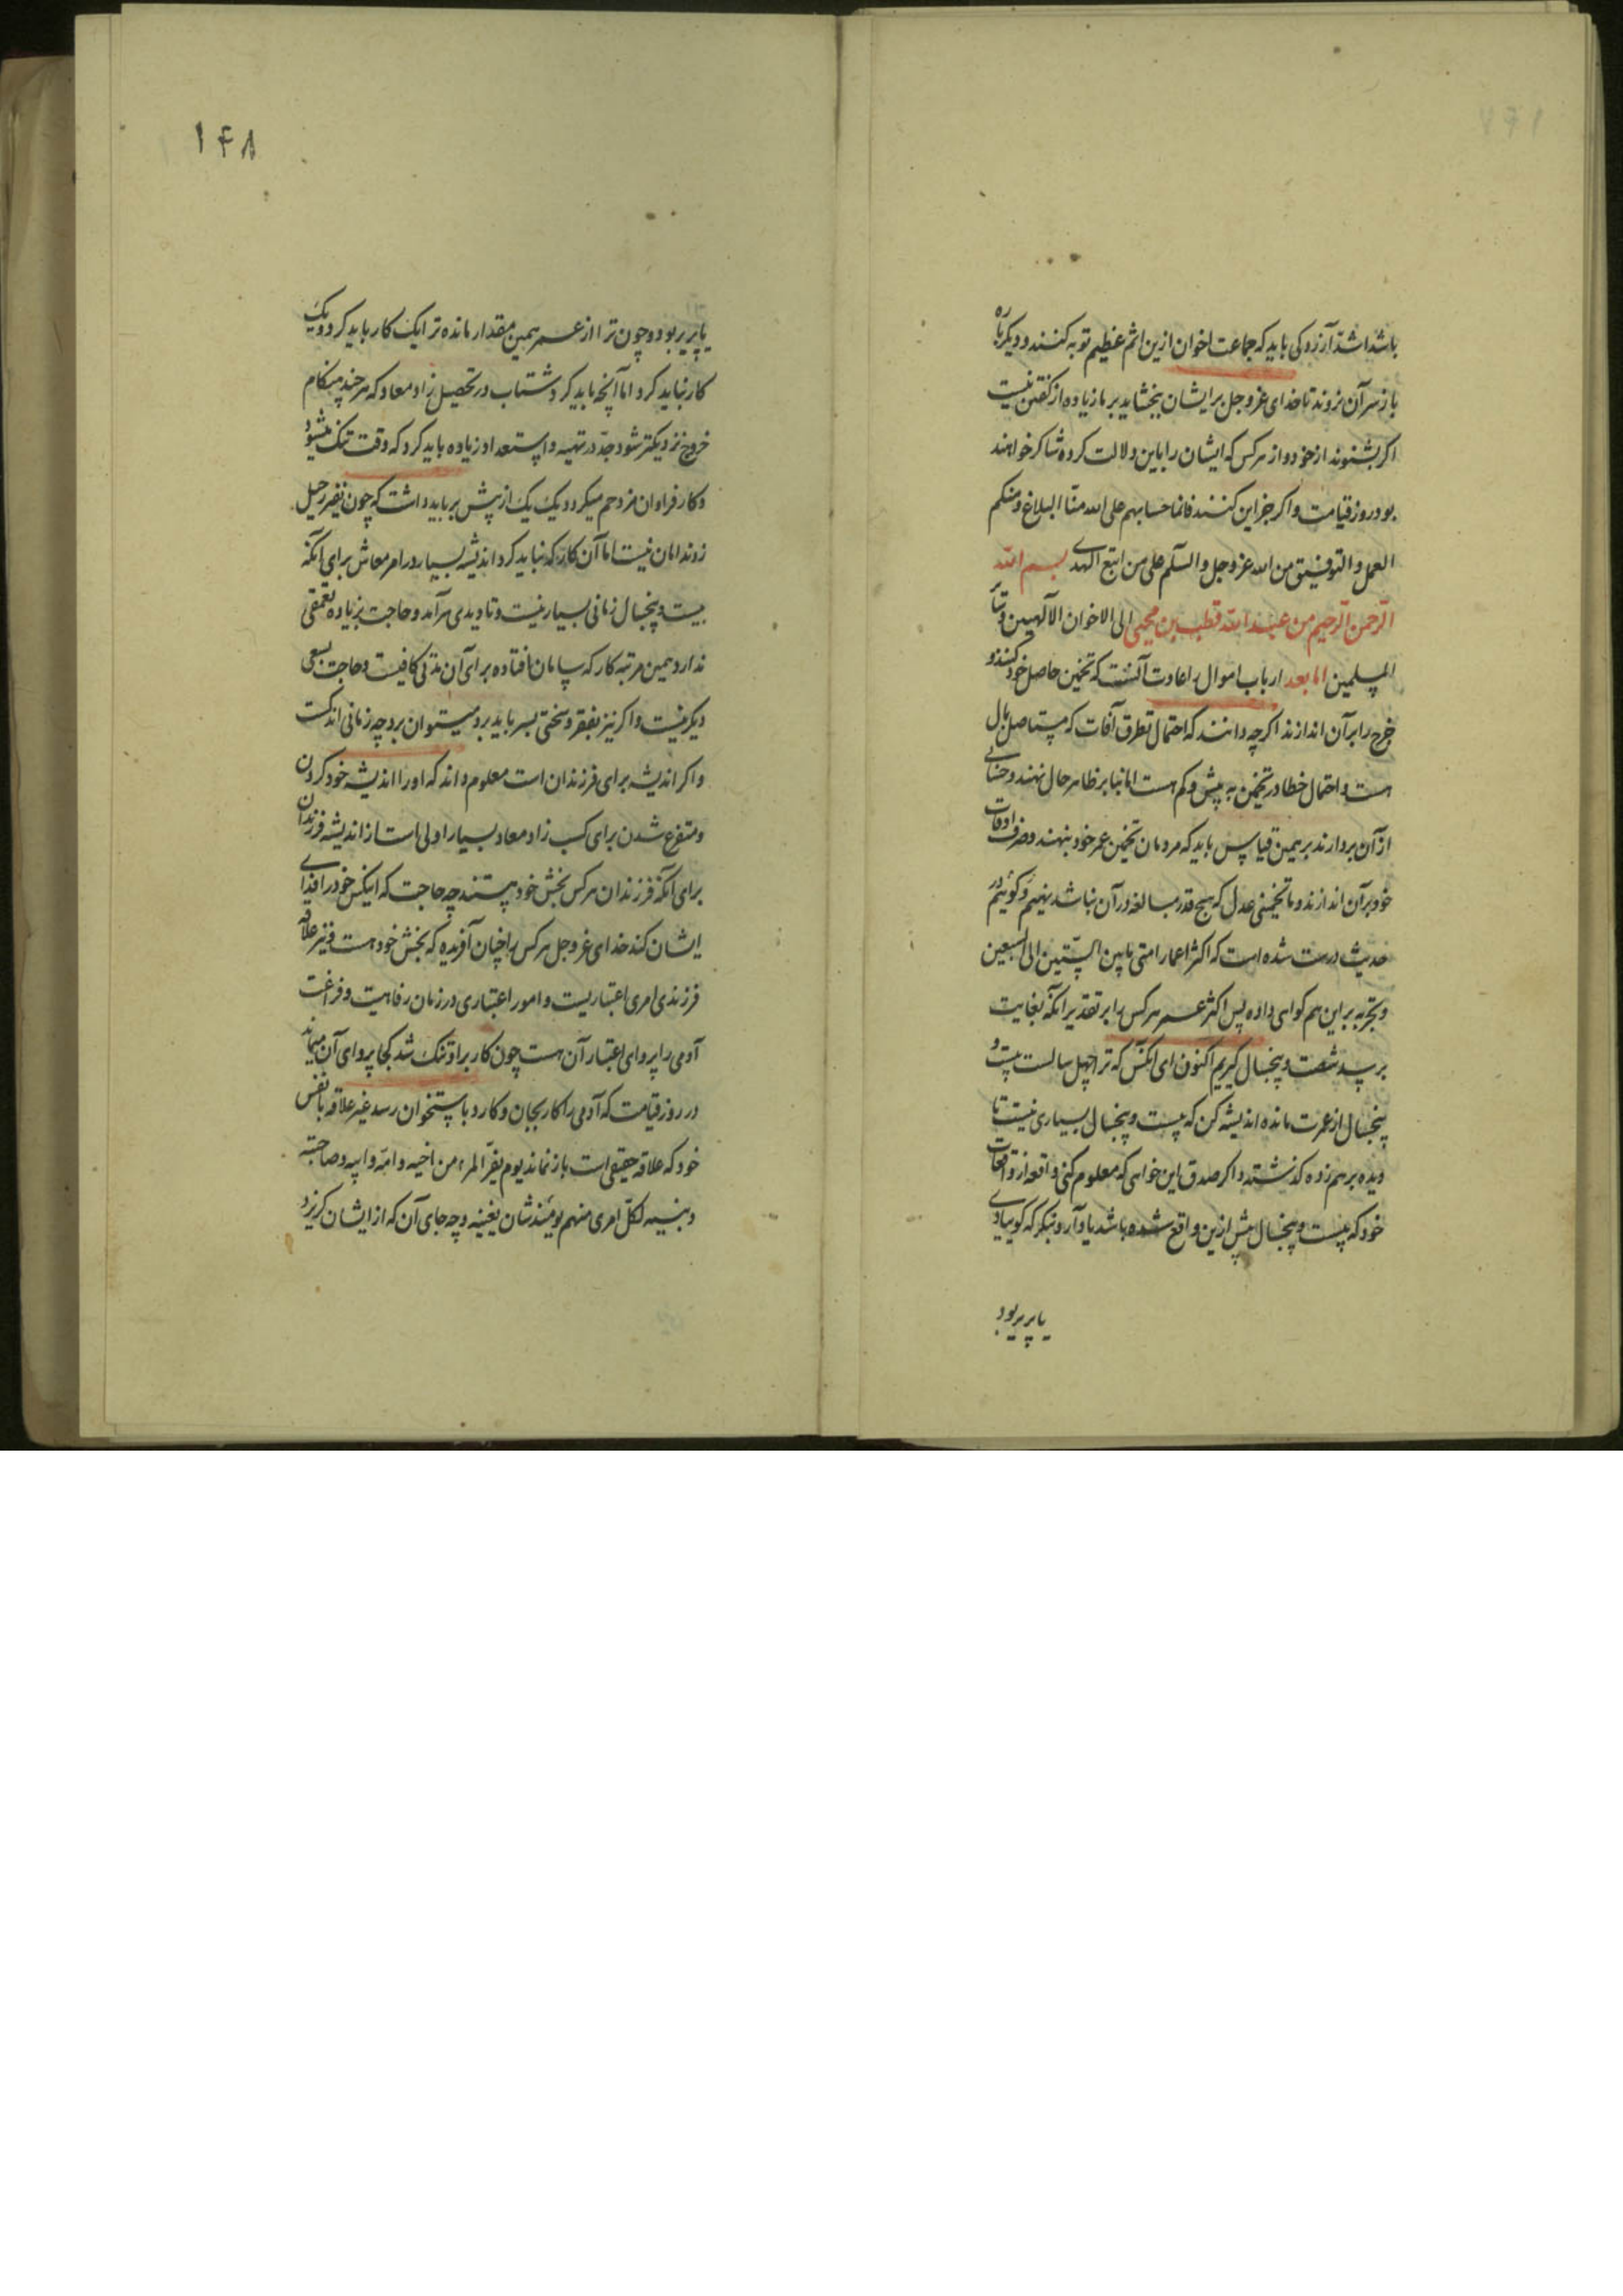 باشد اشد آرزوکی باید که جماعت اخوان ازین اثم عظیم توبه کنند و دیگر باره
باز سر آن نروند تا خدای عز و جل بر ایشان ببخشاید بر ما زیاده از گفتن نیست
اکر بشنوند از خود و از هرکس که ایشان را باین دلالت کرده شاکر خواهند
بود روز قیامت و اکر جز این کنند فانما حسابهم علی الله منّا البلاغ و منکم
العمل و التوفیق من الله عز و جل و السلم علی من اتبع الهدی بسم الله
الرّحمن الرّحیم من عبد الله قطب بن محیی الی الاخوان الالهیین و سایر
المسلمین اما بعد ارباب اموال را عادت آنست که تخمین حاصل خود کنند و
خرج را بر آن اندازند اکرچه دانند که احتمال تطرق آفات که مستاصل مال
هست و احتمال خطا در تخمین به بیش و کم هست اما بنا بر ظاهر حال نهند و حسابی
از آن بردارند بر همین قیاس باید که مردمان تخمین عمر خود بنهند و صرف اوقات
خود بر آن اندازند و ما تخمینی عدل که هیچ قدر مبالغه در آن نباشد بنهیم و کوئیم در
حدیث درست شده است که اکثر اعمار امتی ما بین الستّین الی السبعین
و تجربه بر این هم کواهی داده پس اکثر عمر هرکس را بر تقدیر آنکه بغایت
برسد شصت و پنجسال کیریم اکنون ای آنکس که ترا چهل سالست بیست و
پنجسال از عمرت مانده اندیشه کن که بیست و پنجسال بسیاری نیست تا
دیده بر هم زده کذشته و اکر صدق این خواهی که معلوم کنی واقعه از واقعات
خود که بیست و پنجسال پیش ازین واقع شده باشد یاد آر و بنکر که کویا دی
یا پریر بود
۱۴۸
یا پریر بود و چون ترا از عمر همین مقدار مانده ترا یک کار باید کرد و یک
کار نباید کرد اما آنچه باید کرد شتاب در تحصیل زاد معاد که هر چند هنکام
خروج نزدیکتر شود جدّ در تهیه و استعداد زیاده باید کرد که وقت تنک میشود
و کار فراوان مزدحم میکردد یک یک از پیش بر باید داشت که چون نفیر رحیل
زدند امان نیست اما آن کار که نباید کرد اندیشه بسیار در امر معاش برای آنکه
بیست و پنجسال زمانی بسیار نیست و تا دیدی سرآمد و حاجت بزیاده تعمقی
ندارد همین مرتبه کار که بسامان افتاده برای آن مدتی کافیست و حاجت بسعی
دیکر نیست و اکر نیز بفقر و سختی بسر باید برد میتوان برد چه زمانی اندکست
و اکر اندیشه برای فرزندان است معلوم داند که او را اندیشه خود کردن
و متفرغ شدن برای کسب زاد معاد بسیار اولی است از اندیشه فرزندان
برای آنکه فرزندان هرکس بخش خود هستند چه حاجت که اینکس خود را فدای
ایشان کند خدای عز و جل هرکس را چنان آفریده که بخش خود هست و نیز علاقه
فرزندی امری اعتباریست و امور اعتباری در زمان رفاهیت و فراغت
آدمی را پروای اعتبار آن هست چون کار بر او تنک شد کجا پروای آن میماند
در روز قیامت که آدمی را کار بجان و کارد باستخوان رسد غیر علاقه با نفس
خود که علاقه حقیقی است باز نماند یوم یفرّ المرء من اخیه و امّه و ابیه و صاحبته
و بنیه لکلّ امری منهم یومئذ شان یغنیه و چه جای آن که از ایشان کریزد